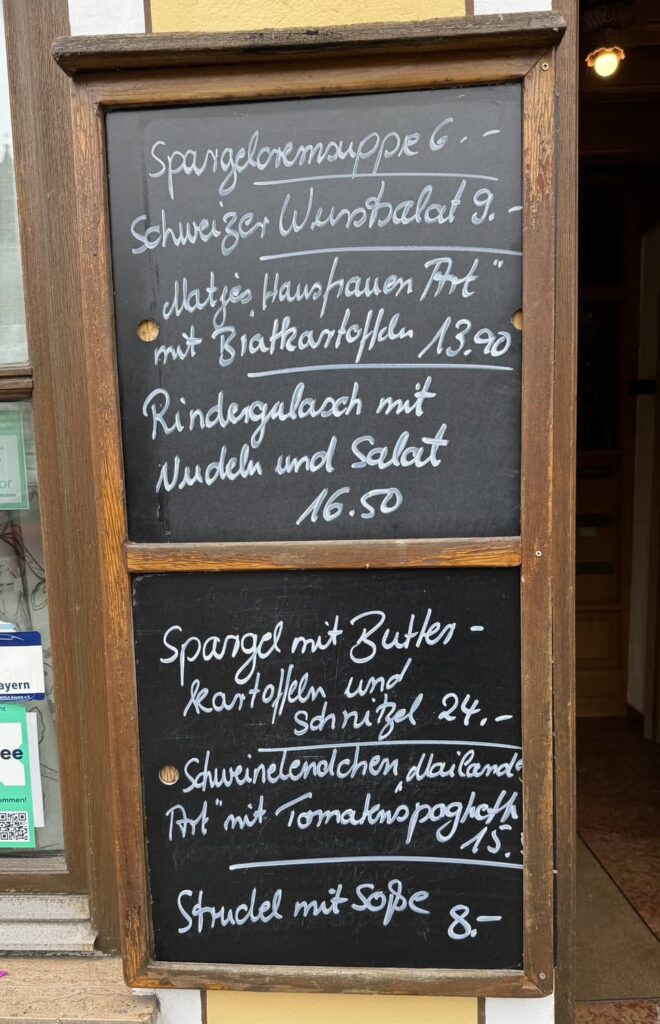 Spargelcremsuppe 6.-
Schweizer Wurstsalat 9.-
Matjes "Hausfrauen Art"
mit Bratkartoffeln 13.90
Rindergulasch mit
Nudeln und Salat
16.50
Spargel mit Butter-
kartoffeln und
Schnitzel 24.-
Schweinelendchen "Mailände
Art" mit Tomatenspaghetti
15.
Strudel mit Soße
8.-
ayern
ee
ommen!